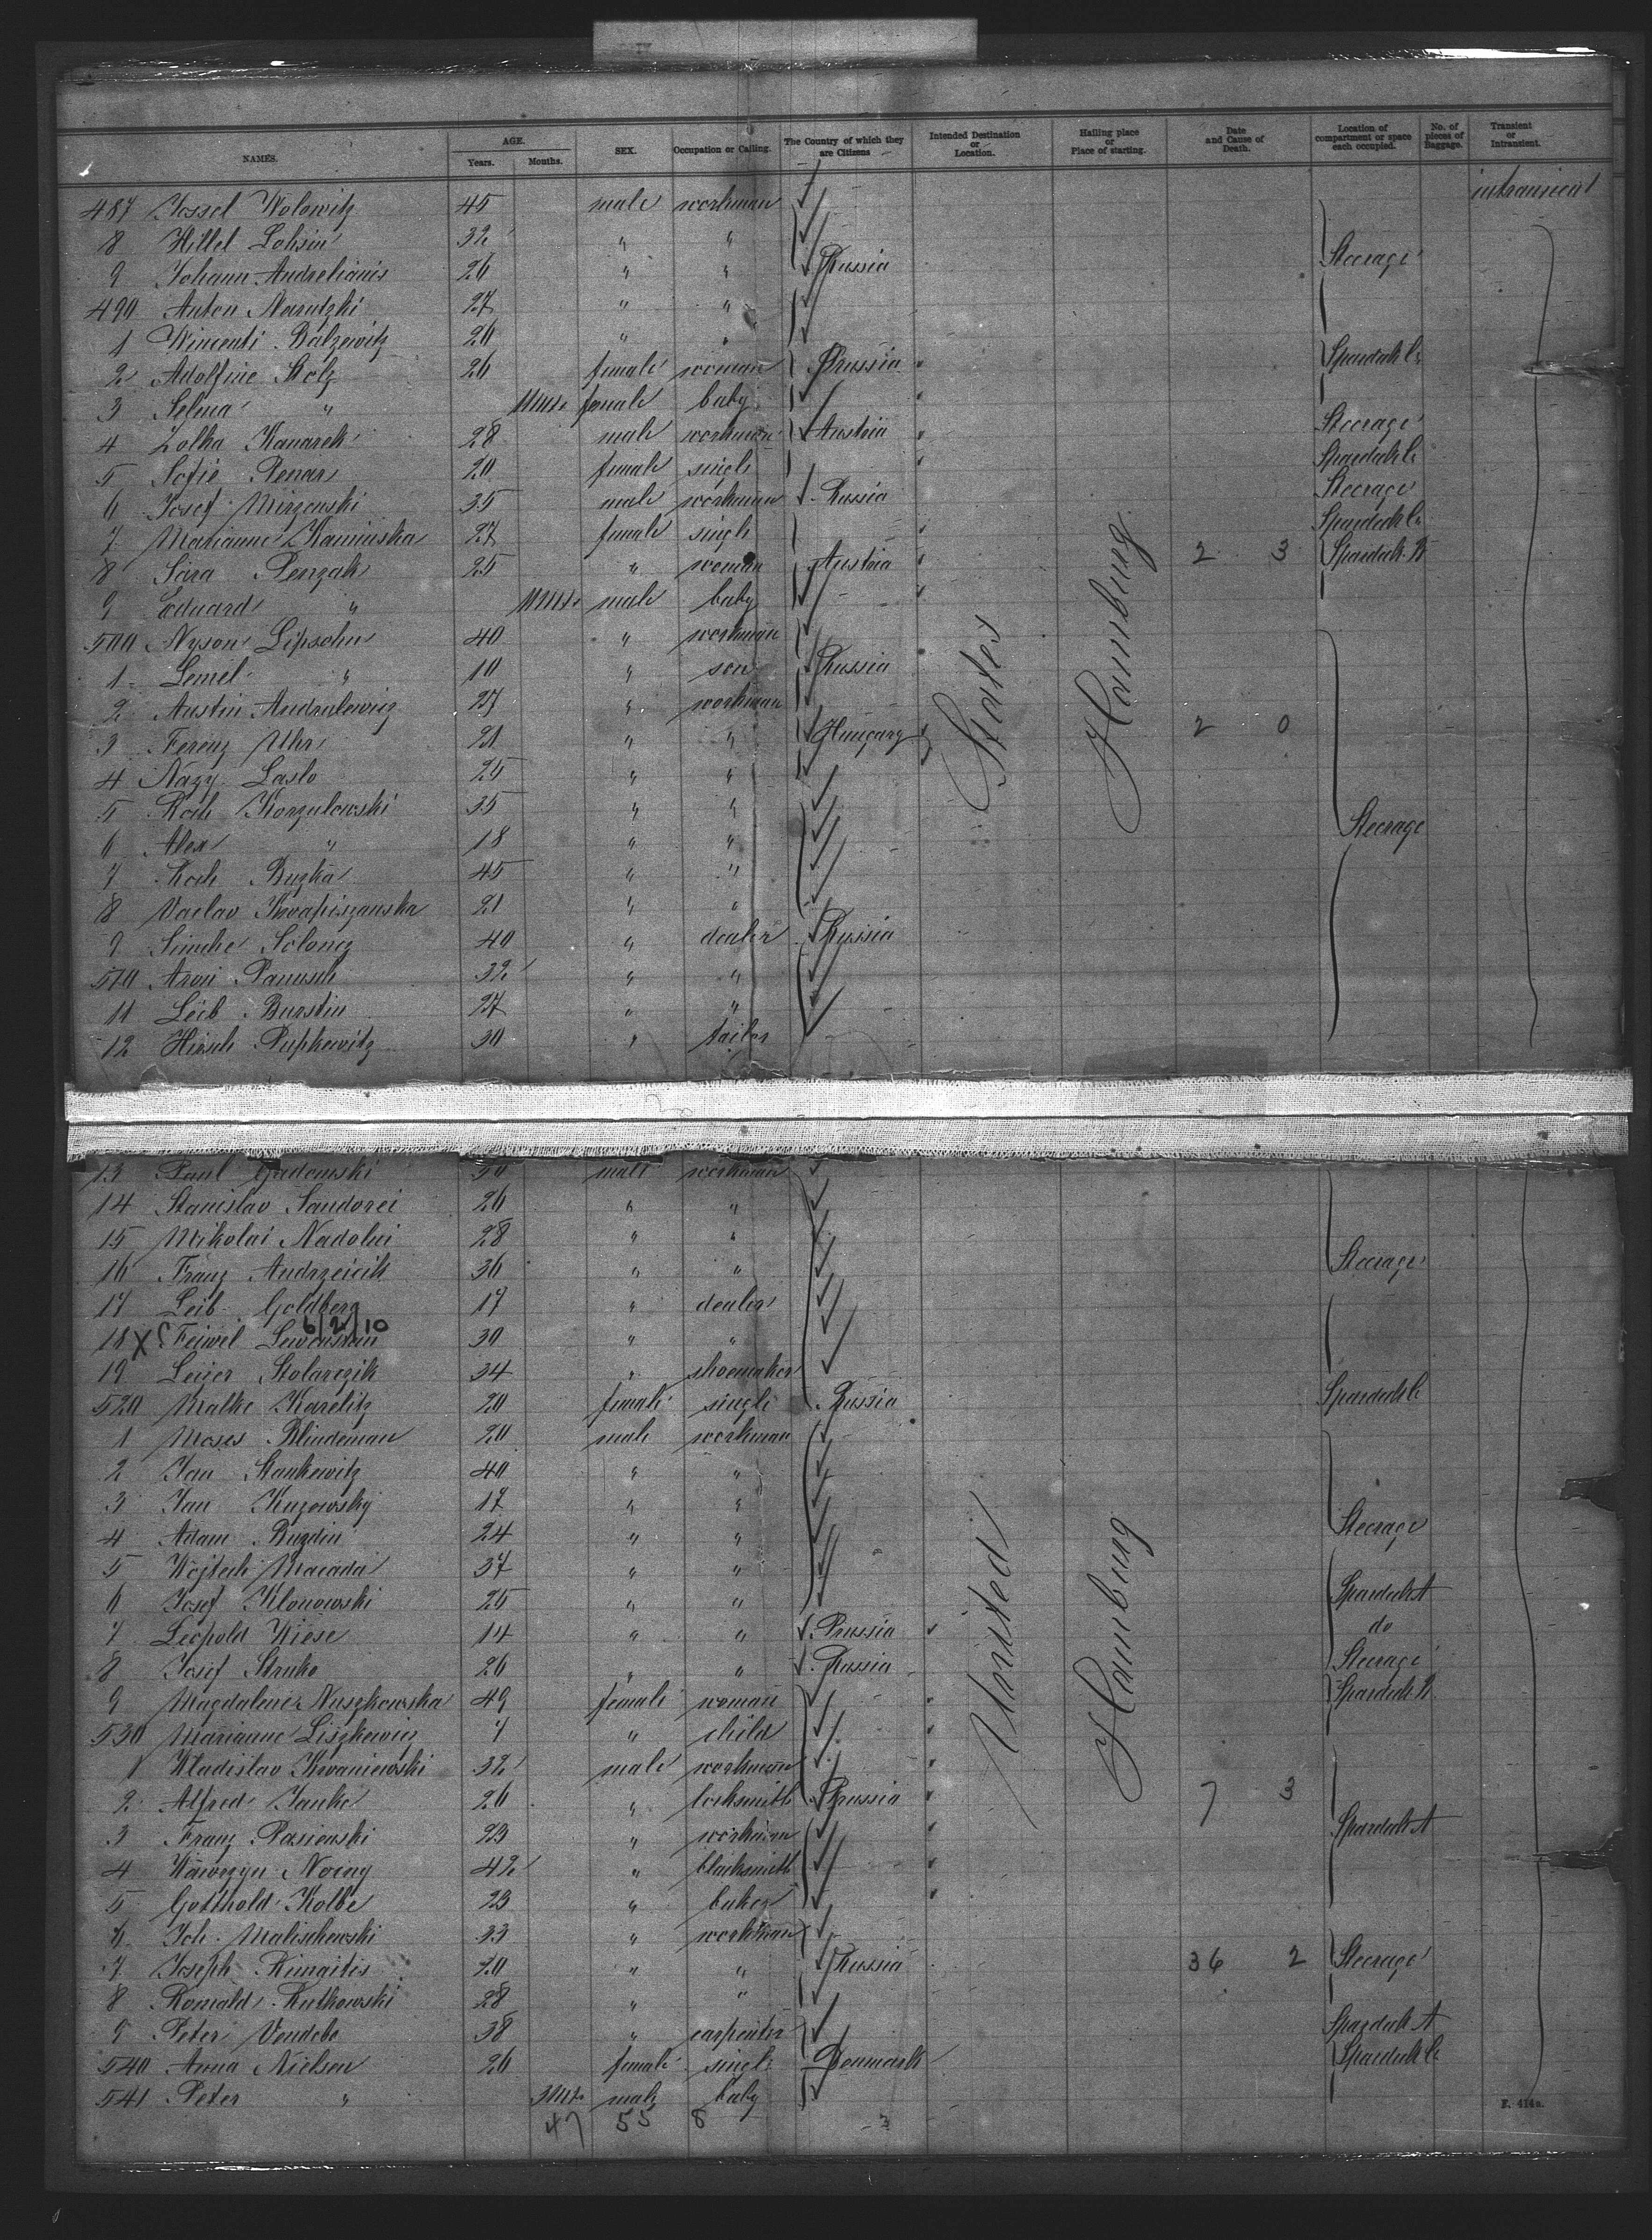 NAMES. AGE. Years. Months. SEX. Occupation or Calling. The Country of which they are Citizens Intended Destination or Location. Hailing place or Place of starting. Date and Cause of Death. Location of compartment or space each occupied. No. of pieces of Baggage. Transient or Intransient.
487 Jossel Wolowitz 45 male workman intransient
8 Hillel 32 " " Steerage
9 Johann Andrelianis 26 " " Russia
490 Anton Narutzki 27 " "
1 Wincenti Balzewitz 20 " "
2 Adolfine Stolz 26 female woman Prussia Spardeck C.
3 Selma " 11 Mts. female baby
4 Zolka Kanarek 28 male workman Austria Steerage
5 Sofie Penar 20 female single Spardeck C.
6 Josef Mirzenski 35 male workman Russia Steerage
7 Marianne Kaminska 27 female single Spardeck C.
8 Sara Penzak 25 " woman Austria 2 3 Spardeck B
9 Eduard " 11 Mts. male baby
500 Nyson Lipsohn 40 " workman
1 Lemel " 10 " son Russia
2 Austin Andrulewicz 27 " workman
3 Ferenz Uhr 21 " " Hungary 2 0
4 Nagy Laslo 25 " "
5 Roch Korzulowski 35 " "
6 Alex " 18 " " Steerage
7 Roch Buzka 45 " "
8 Vaclav Kwapiszanska 21 " "
9 Simche Solomcz 40 " dealer Russia
510 Aron Panusch 32 " "
11 Leib Burstin 27 " "
12 Hirsch Pupkewitz 30 " tailor
States
Hamburg
13 Paul Gadomski male workman
14 Stanislav Sandorei 26 " "
15 Mikolai Nadolni 28 " "
16 Franz Andrzeicik 36 " " Steerage
17 Leib Goldberg 17 " dealer
6/2/10
18 X Feiwel 30 " "
19 Leiser Stolarczik 34 " shoemaker
520 Malke Karelitz 20 female single Russia Spardeck C
1 Moses Blindeman 20 male workman
2 Jan Stankewitz 40 " "
3 Jan Kuzowsky 17 " "
4 Adam Buzdin 24 " " Steerage
5 Wojtech Macada 37 " "
6 Josef Klonowski 25 " " Spardeck A
7 Leopold Wiese 14 " " Prussia do
8 Josef Struko 26 " " Russia Steerage
9 Magdalena Nuszkowska 49 female woman Spardeck B
530 Marianne Liszkewicz 7 " child
1 Wladislav Kwaniewski 32 male workman
2 Alfred Janke 26 " locksmith Prussia 7 3
3 Franz Pasienski 23 " workman Spardeck A
4 Wawrzyn Noing 42 " blacksmith
5 Gotthold Kolbe 23 " baker
6 Joh. Malischewski 33 " workman
7 Joseph Rimaitis 20 " " Russia 36 2 Steerage
8 Romald Rutkowski 28 " "
9 Peter Vendebo 38 " carpenter Spardeck A
540 Anna Nielsen 26 female single Denmark Spardeck C.
541 Peter " 3 Mts. male baby
United
Hamburg
47 55 8 3
F. 414a.